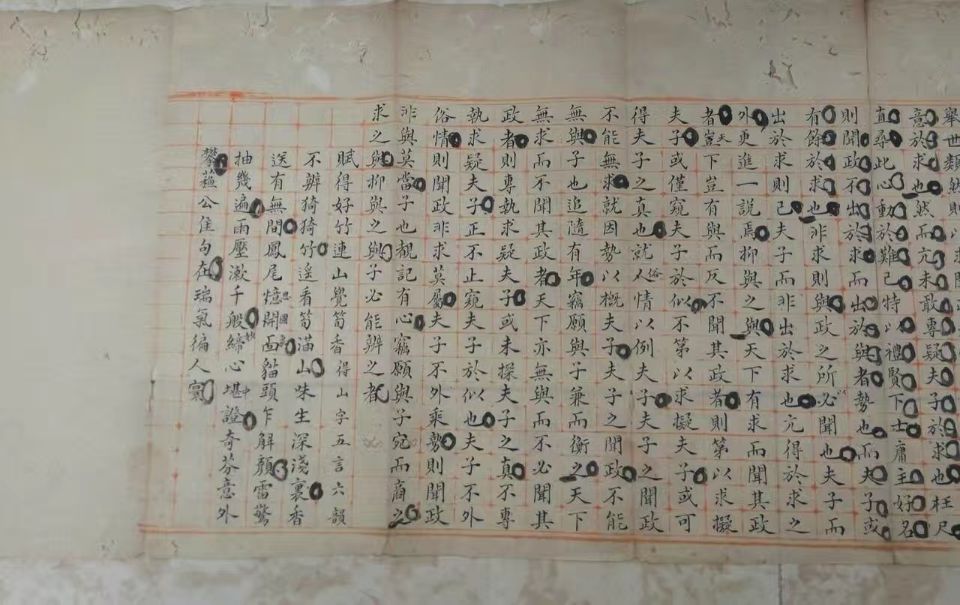 舉世類然則
意於求也然而亢未敢專疑夫子於求也枉尺
直尋此心動於難已特以禮賢下士庸主好名
則聞政不出於求而出於與者勢也而夫子或
有餘於求也非求則與政之所必聞也夫子而
出於求則已夫子而非出於求也亢得於求之
外更進一說焉抑與之與天下有求而聞其政
者豈天下豈有與而反不聞其政者則第以求擬
夫子或僅窺夫子於似不第以求擬夫子或可
得夫子之真也就俗情以例夫子夫子之聞政
不能無求就因勢以概夫子夫子之聞政不能
無與子也追隨有年竊願與子兼而衡之天下
無求而不聞其政者天下亦無與而不必聞其
政者則專執求疑夫子或未探夫子之真不專
執求疑夫子正不止窺夫子於似也夫子不外
俗情則聞政非求莫屬夫子不外乘勢則聞政
非與莫當子也覩記有心竊願與子宛而商之
求之與抑與之與子必能辨之者
賦得好竹連山覺筍香得山字五言六韻
不辨猗猗竹遙看筍滿山味生深淺裏香
送有無間鳳尾煙開面貓頭乍解顏雷驚
抽幾遍雨壓漱千般締心堪證奇芬意外
攀蘓公佳句在瑞氣徧人寰